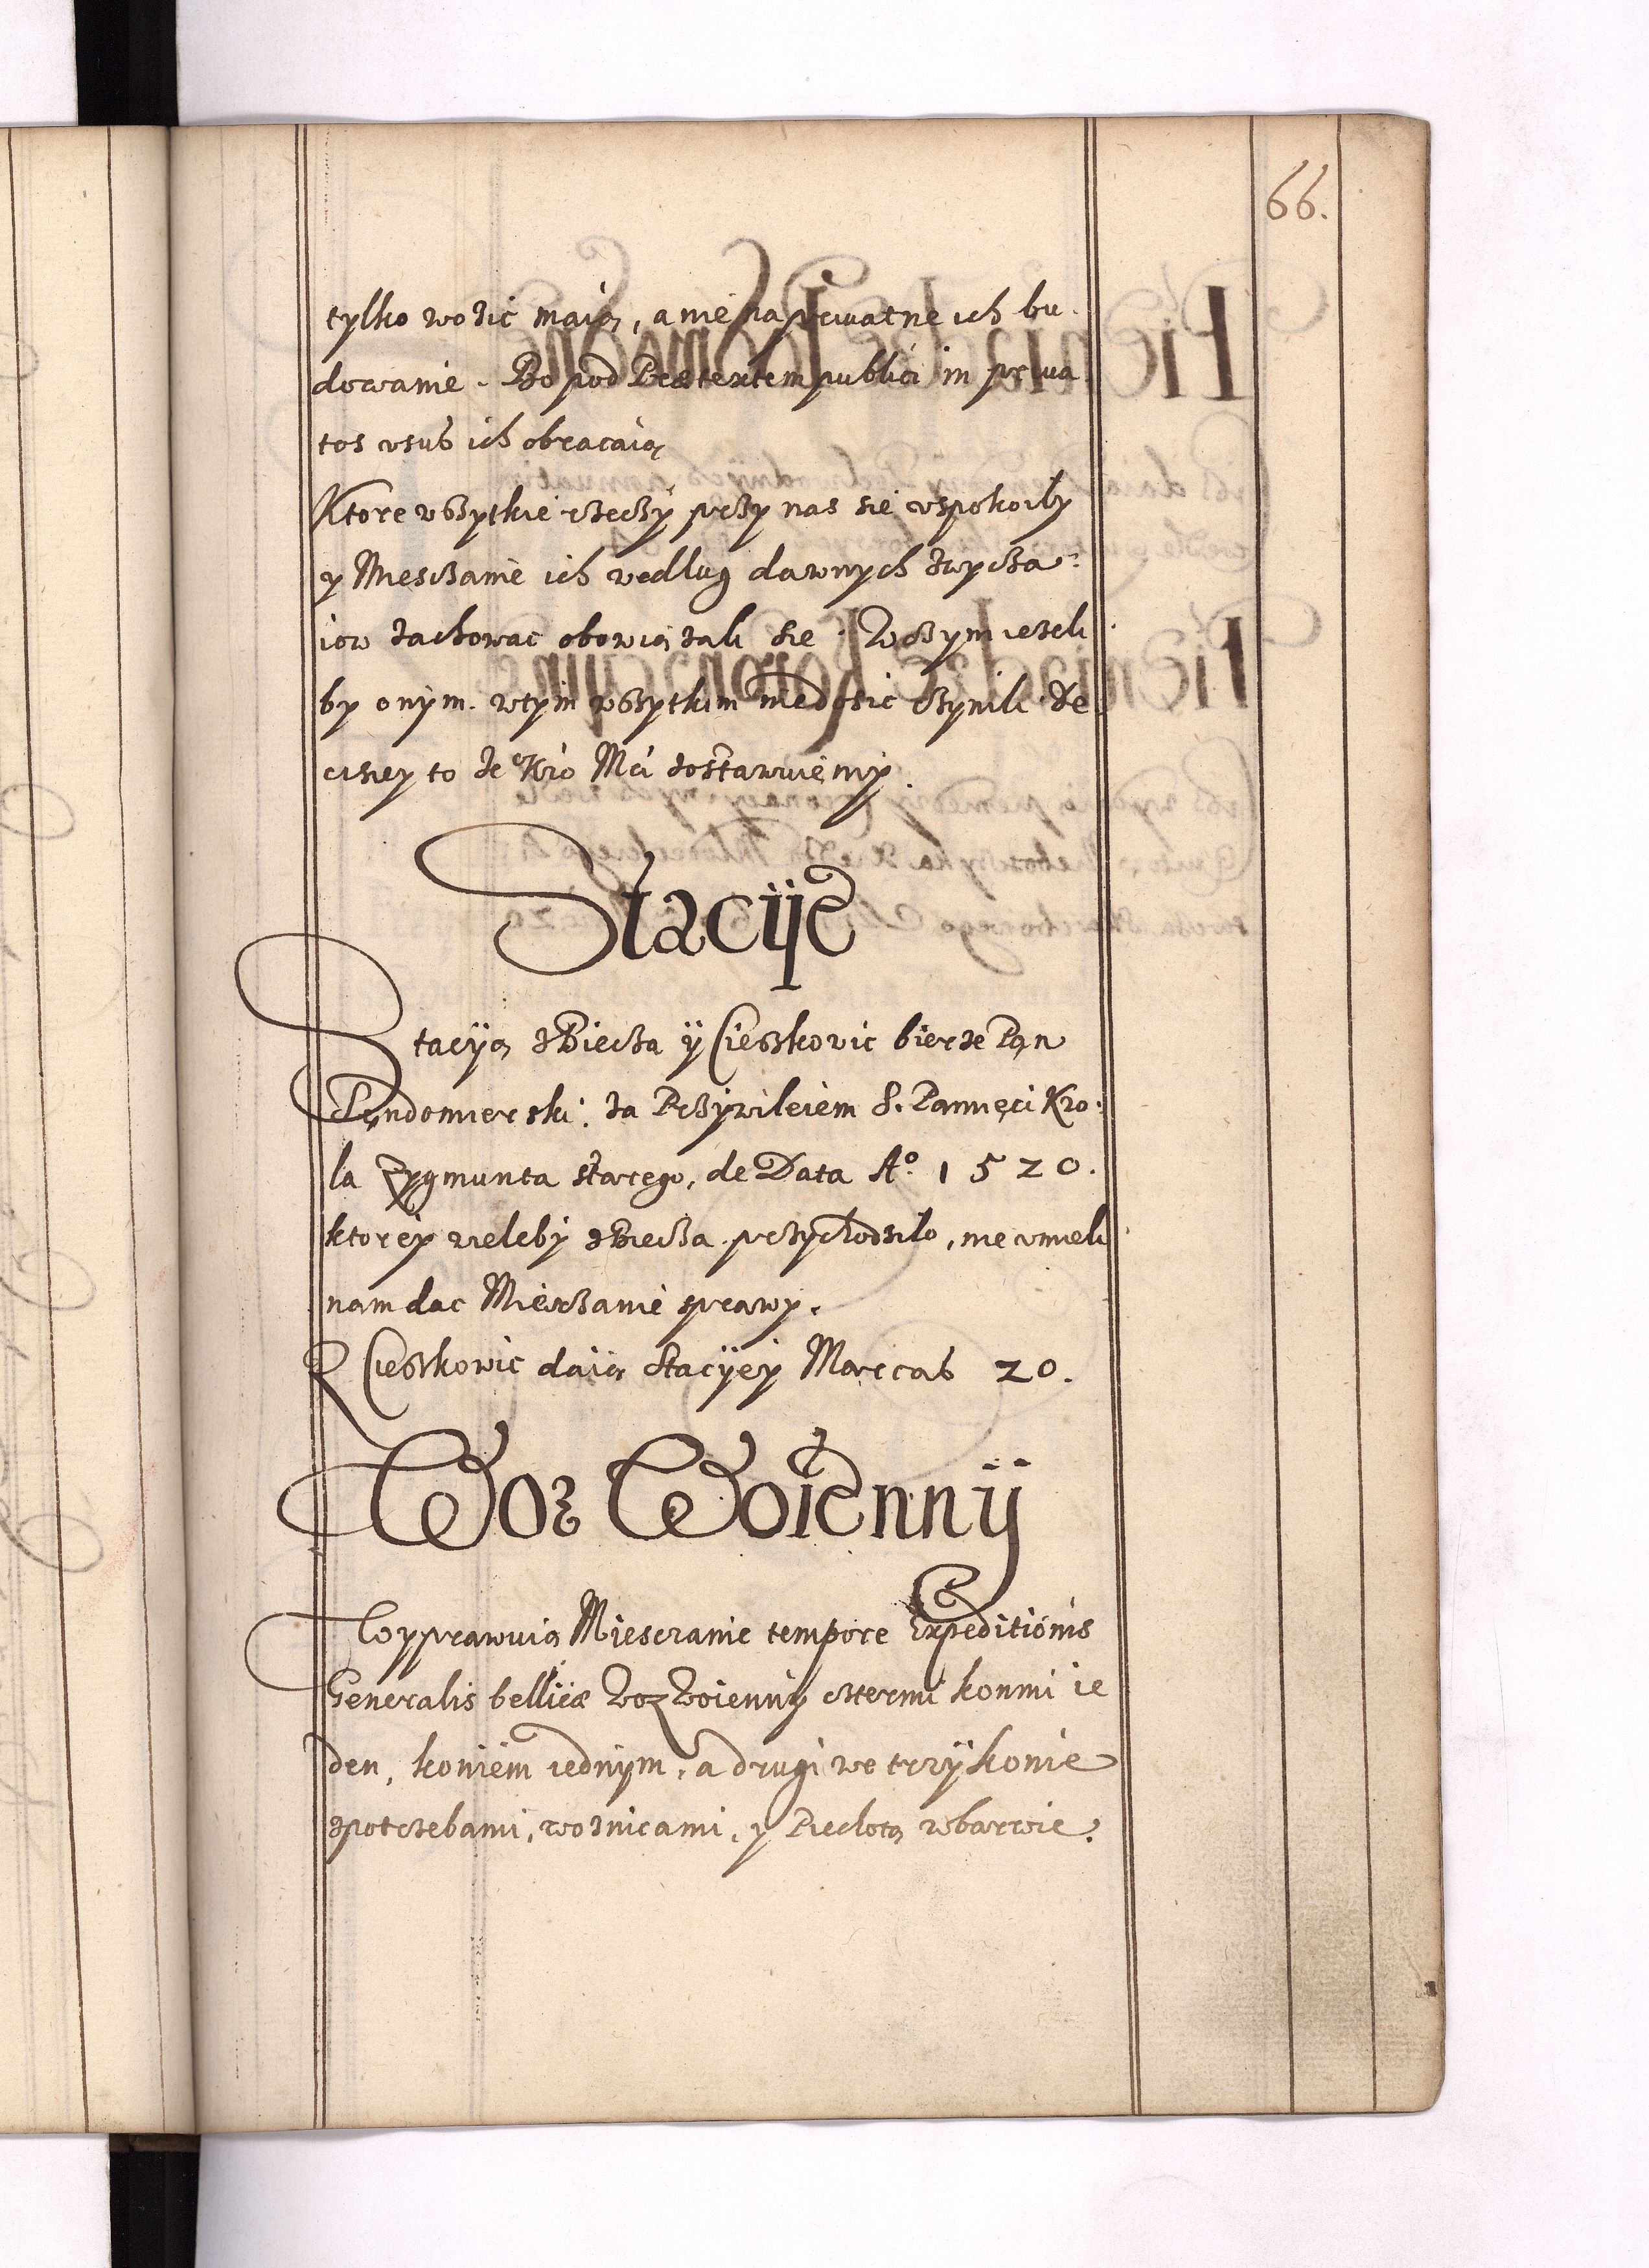 66.
tylko wozic maią, a nie na priwatne ich bu
dowanie. Bo pod Praetextem publici in priua
tos vsus ich obracaią
Ktore wszytkie rzeczy przy nas sie vspokoiły
y Miesczanie ich według dawnych zwycza
iow zachowac obowiązali sie. W czym iezeli
by onym. wtym wszytkim niedosic czynili. de
cisiey to Je Kro Mci zostawuiemy.
Stacije
Stacyą z Biecza ÿ Cieszkovic bierze Pan
Sendomierski. za Przywileiem S. Pamięci Kro
la Zygmunta starego, de Data Aº. 1520.
ktorey wieleby z Biecza przychodziło, nie vmieli
nam dac Miesczanie sprawy.
Z Cieszkowic daią Stacyey Marcas 20.
Woz Woienny
Wyprawuią Miesczanie tempore Expeditionis
Generalis bellicæ Woz Woienny cztermi konmi ie
den, koniem iednym, a drugi we trzy konie
zpotrzebami, woznicami, y Piechotą wbarwie.